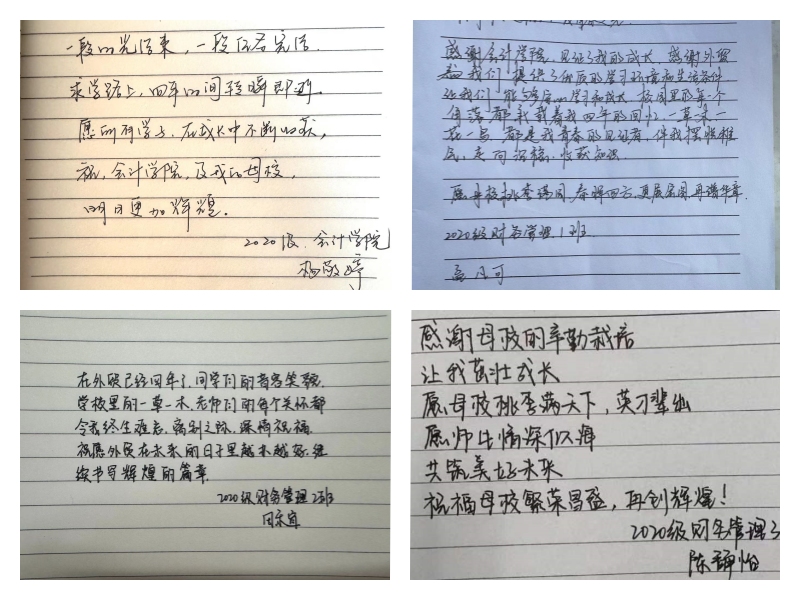 一段的光结束，一段任君完活.
求学路上，四年的间转瞬即逝.
愿所有学子，在成长中不断收获，
祝，会计学院，及我的母校，
明日更加辉煌.
2020级.会计学院
杨敬婷
感谢会计学院，见证了我的成长，感谢外贸
为我们提供了优质的学习环境和生活条件.
让我们能够安心学习和成长.校园里的每个
角落都承载着我四年的回忆,一草一
花一鸟，都是我青春的见证者，伴我摆脱稚
气,走向沉稳,收获知识.
愿母校桃李满园,春晖四方,更展宏图,再谱华章.
2020级财务管理1班.
可
在外贸已经四年了,同学们的音容笑貌,
学校里的一草一木,老师们的每个关怀都
令我终生难忘.离别之际,深情祝福,
祝愿外贸在未来的日子里越来越好,继
续书写辉煌的篇章.
2020级财务管理2班
田宜
感谢母校的辛勤栽培
让我茁壮成长
愿母校桃李满天下，英才辈出
愿师生情深似海
共筑美好未来
祝福母校繁荣昌盛，再创辉煌！
2020级财务管理3
陈静怡